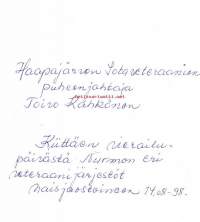 Haapajärven Sotaveteraanien
puheenjohtaja
Toivo Kähkönen
Kiittäen vierailu-
päivästä Nurmon Eri
veteraanijärjestöt
naisjaostoineen 14.08-98.